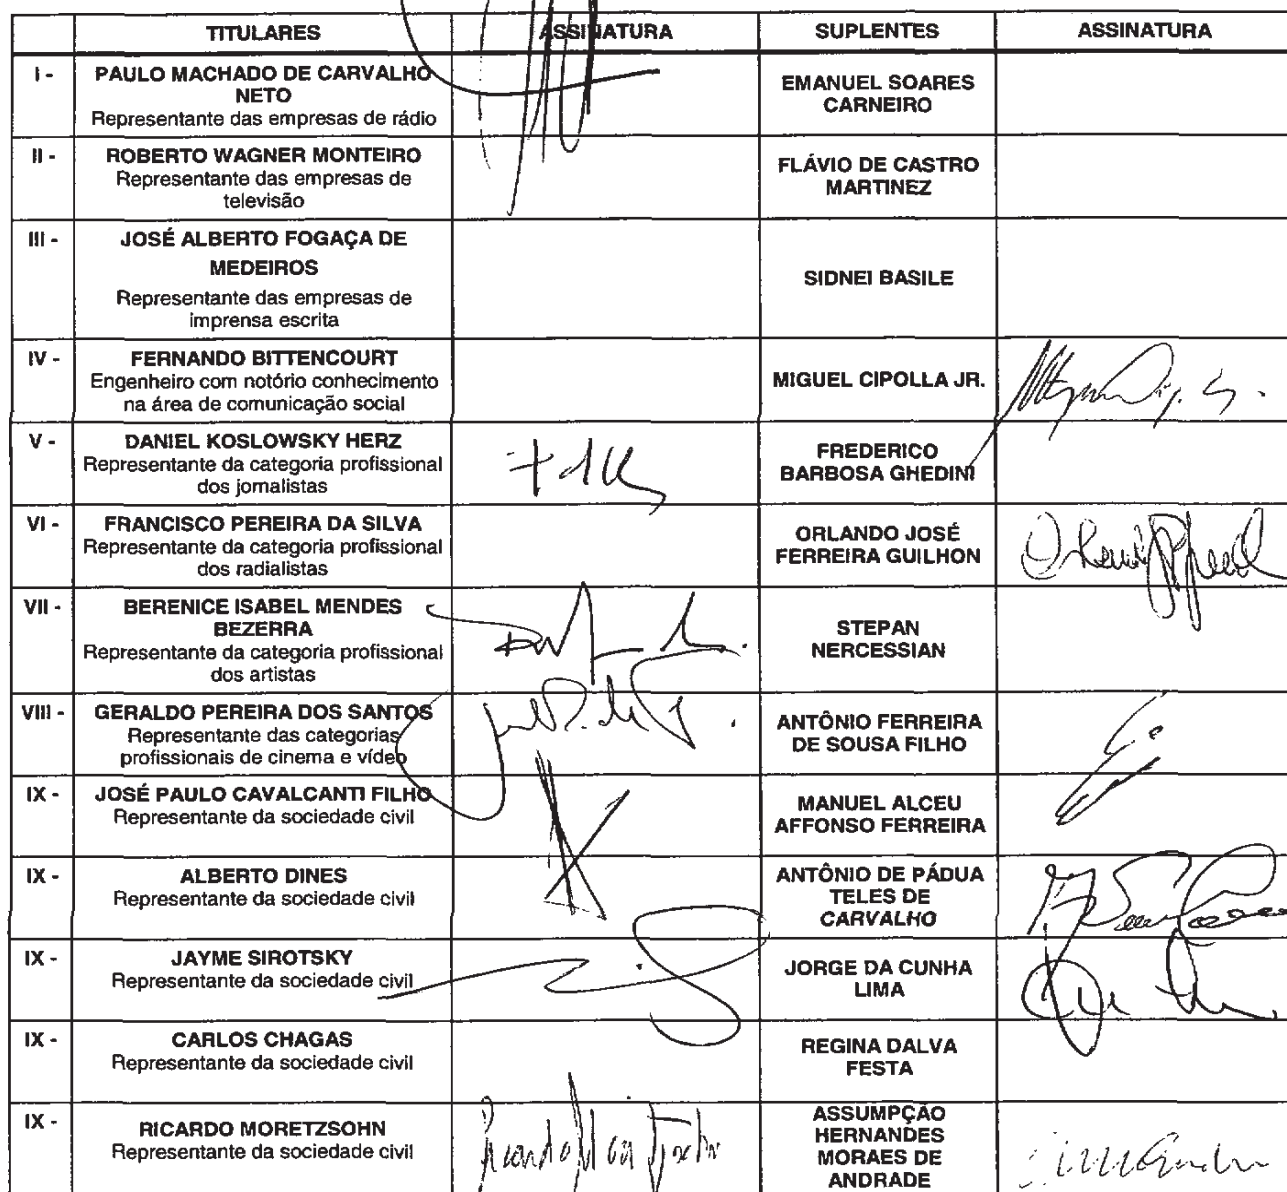 TITULARES ASSINATURA SUPLENTES ASSINATURA
I - PAULO MACHADO DE CARVALHO
NETO
Representante das empresas de rádio
EMANUEL SOARES
CARNEIRO
II - ROBERTO WAGNER MONTEIRO
Representante das empresas de
televisão
FLÁVIO DE CASTRO
MARTINEZ
III - JOSÉ ALBERTO FOGAÇA DE
MEDEIROS
Representante das empresas de
imprensa escrita
SIDNEI BASILE
IV - FERNANDO BITTENCOURT
Engenheiro com notório conhecimento
na área de comunicação social
MIGUEL CIPOLLA JR.
V - DANIEL KOSLOWSKY HERZ
Representante da categoria profissional
dos jornalistas
FREDERICO
BARBOSA GHEDINI
VI - FRANCISCO PEREIRA DA SILVA
Representante da categoria profissional
dos radialistas
ORLANDO JOSÉ
FERREIRA GUILHON
VII - BERENICE ISABEL MENDES
BEZERRA
Representante da categoria profissional
dos artistas
STEPAN
NERCESSIAN
VIII - GERALDO PEREIRA DOS SANTOS
Representante das categorias
profissionais de cinema e vídeo
ANTÔNIO FERREIRA
DE SOUSA FILHO
IX - JOSÉ PAULO CAVALCANTI FILHO
Representante da sociedade civil
MANUEL ALCEU
AFFONSO FERREIRA
IX - ALBERTO DINES
Representante da sociedade civil
ANTÔNIO DE PÁDUA
TELES DE
CARVALHO
IX - JAYME SIROTSKY
Representante da sociedade civil
JORGE DA CUNHA
LIMA
IX - CARLOS CHAGAS
Representante da sociedade civil
REGINA DALVA
FESTA
IX - RICARDO MORETZSOHN
Representante da sociedade civil
ASSUMPÇÃO
HERNANDES
MORAES DE
ANDRADE